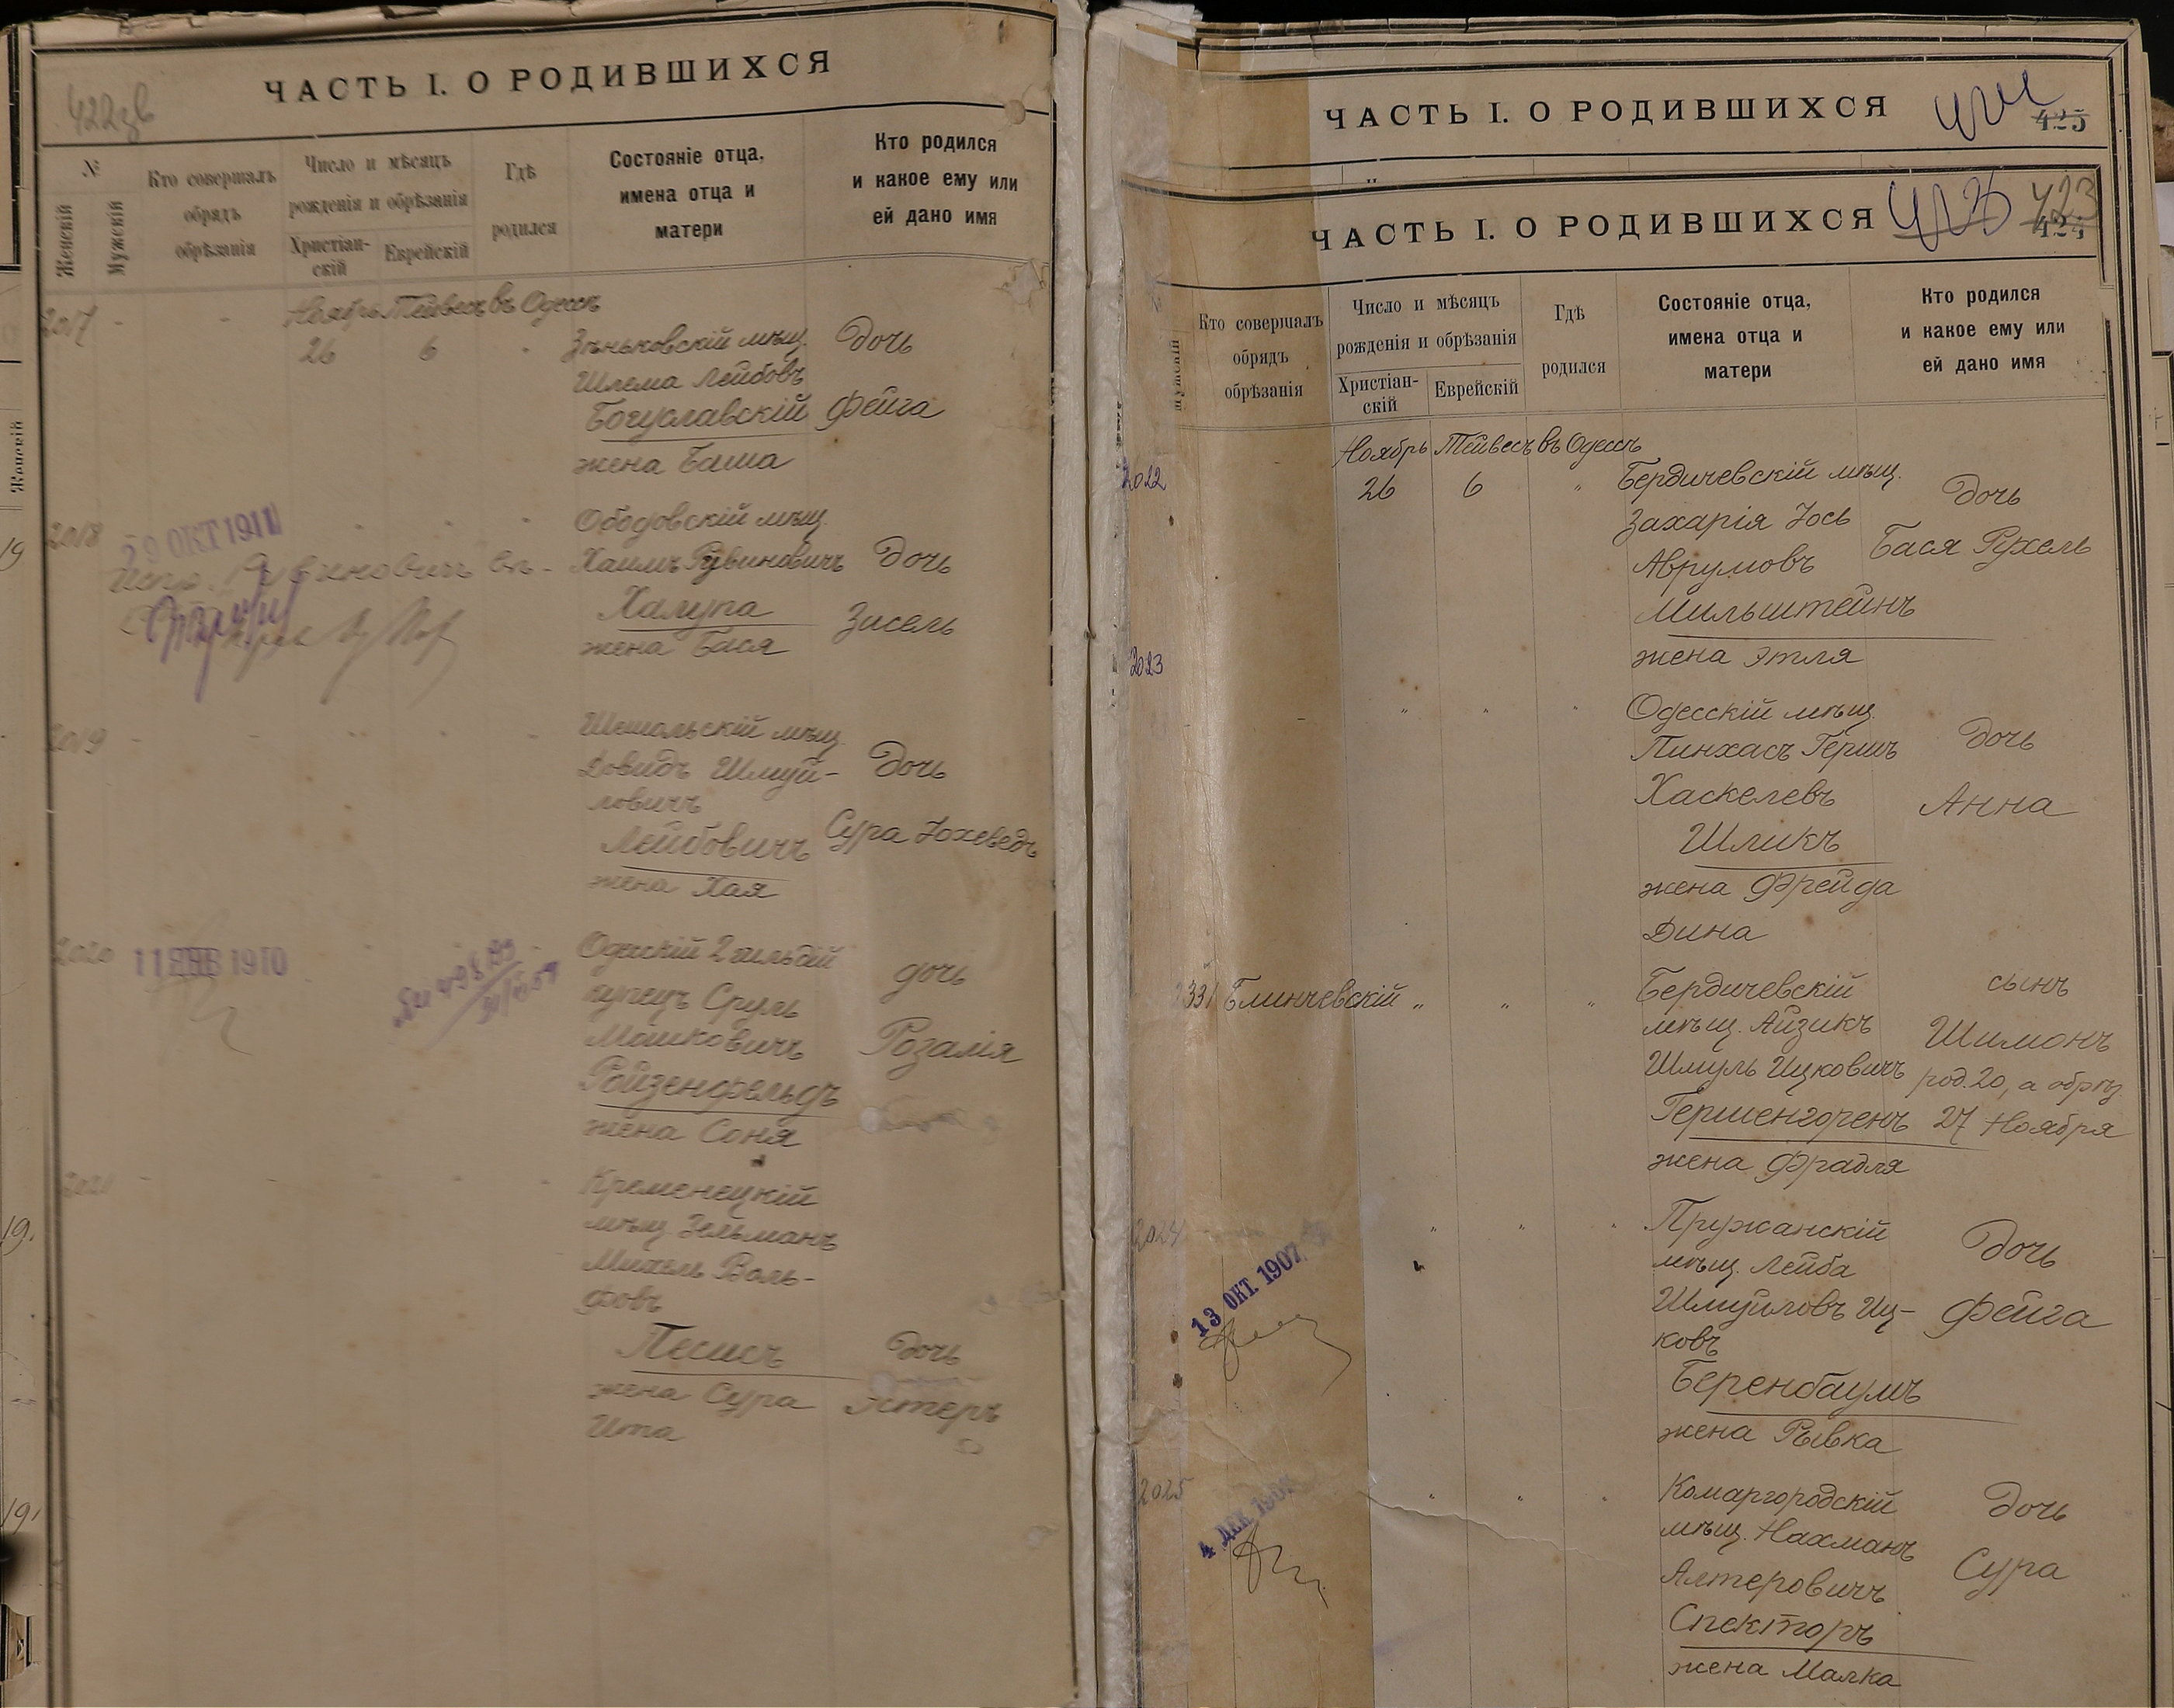 ЧАСТЬ I. О РОДИВШИХСЯ
422
№
Женскій
Мужескій
Кто совершалъ
обрядъ
обрѣзанія
Число и мѣсяцъ
рожденія и обрѣзанія
Христіан-
скій
Еврейскій
Гдѣ
родился
Состояніе отца,
имена отца и
матери
Кто родился
и какое ему или
ей дано имя
2017 - - Ноябрь Тейвесъ въ Одессѣ
26 6 Зѣньковскій мѣщ. Дочь
Шлема Лейбовъ
Богуславскій Фейга
жена Баша
2018 29 ОКТ 1911 Ободовскій мѣщ.
Хаимъ Рувиновичъ Дочь
Халупа Зисель
жена Бася
2019 Шепольскій мѣщ.
Довидъ Шмуй- Дочь
ловичъ
Лейбовичъ Сура Іохеведъ
жена Хая
2020 1910 Одесскій 2 гильдій дочь
купецъ Сруль
Мошковичъ Розалія
Ройзенфельдъ
жена Соня
2021 Кременецкій
мѣщ. Зельманъ
Михель Воль-
фовъ
Песисъ Дочь
жена Сура Эстеръ
Ита
ЧАСТЬ I. О РОДИВШИХСЯ
425
ЧАСТЬ I. О РОДИВШИХСЯ
423 423
424
Мужескій
Кто совершалъ
обрядъ
обрѣзанія
Число и мѣсяцъ
рожденія и обрѣзанія
Христіан-
скій
Еврейскій
Гдѣ
родился
Состояніе отца,
имена отца и
матери
Кто родился
и какое ему или
ей дано имя
Ноябрь Тейвесъ въ Одессѣ
2022 26 6 " Бердичевскій мѣщ. Дочь
Захарія Іось
Аврумовъ Бася Рухель
Мильштейнъ
жена Этля
2023 - " " " Одесскій мѣщ.
Пинхасъ Гершъ Дочь
Хаскелевъ Анна
Шликъ
жена Фрейда
Дина
331 Блинчевскій " " " Бердичевскій сынъ
мѣщ. Айзикъ Шимонъ
Шмуль Ицковичъ род. 20, а обрѣз
Гершенгоренъ 27 Ноября
жена Фрадля
2024 " " " Пружанскій
мѣщ. Лейба Дочь
13 ОКТ. 1907
Шмуйловъ Иц- Фейга
ковъ
Беренбаумъ
жена Рывка
2025 " " " Комаргородскій Дочь
4 ДЕК
мѣщ. Нахманъ
Алтеровичъ Сура
Спекторъ
жена Малка